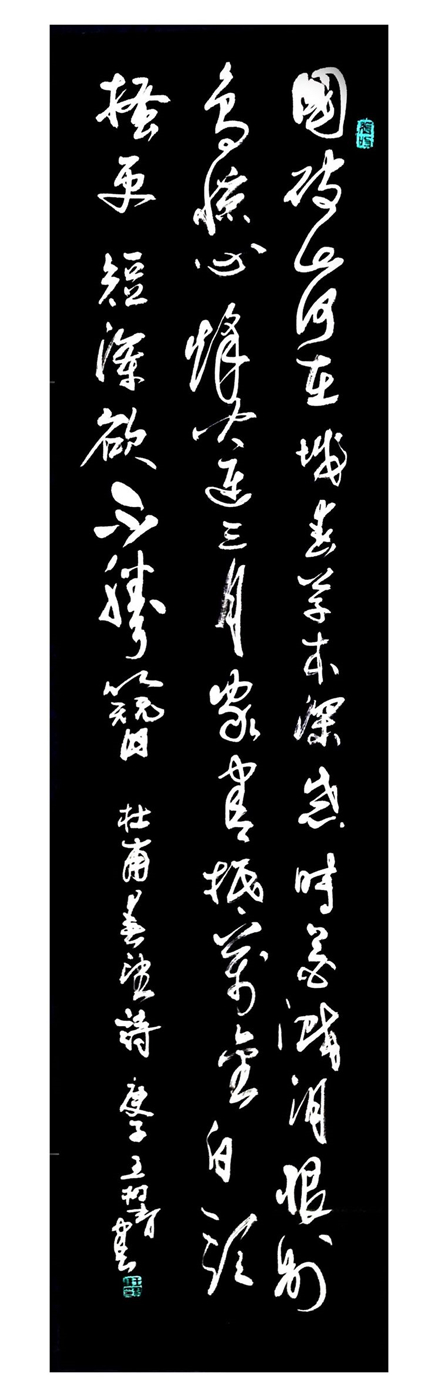 國破山河在城春草木深感時花濺淚恨別
鳥驚心烽火連三月家書抵萬金白頭
搔更短渾欲不勝簪 杜甫春望詩 庚子 王樹青書